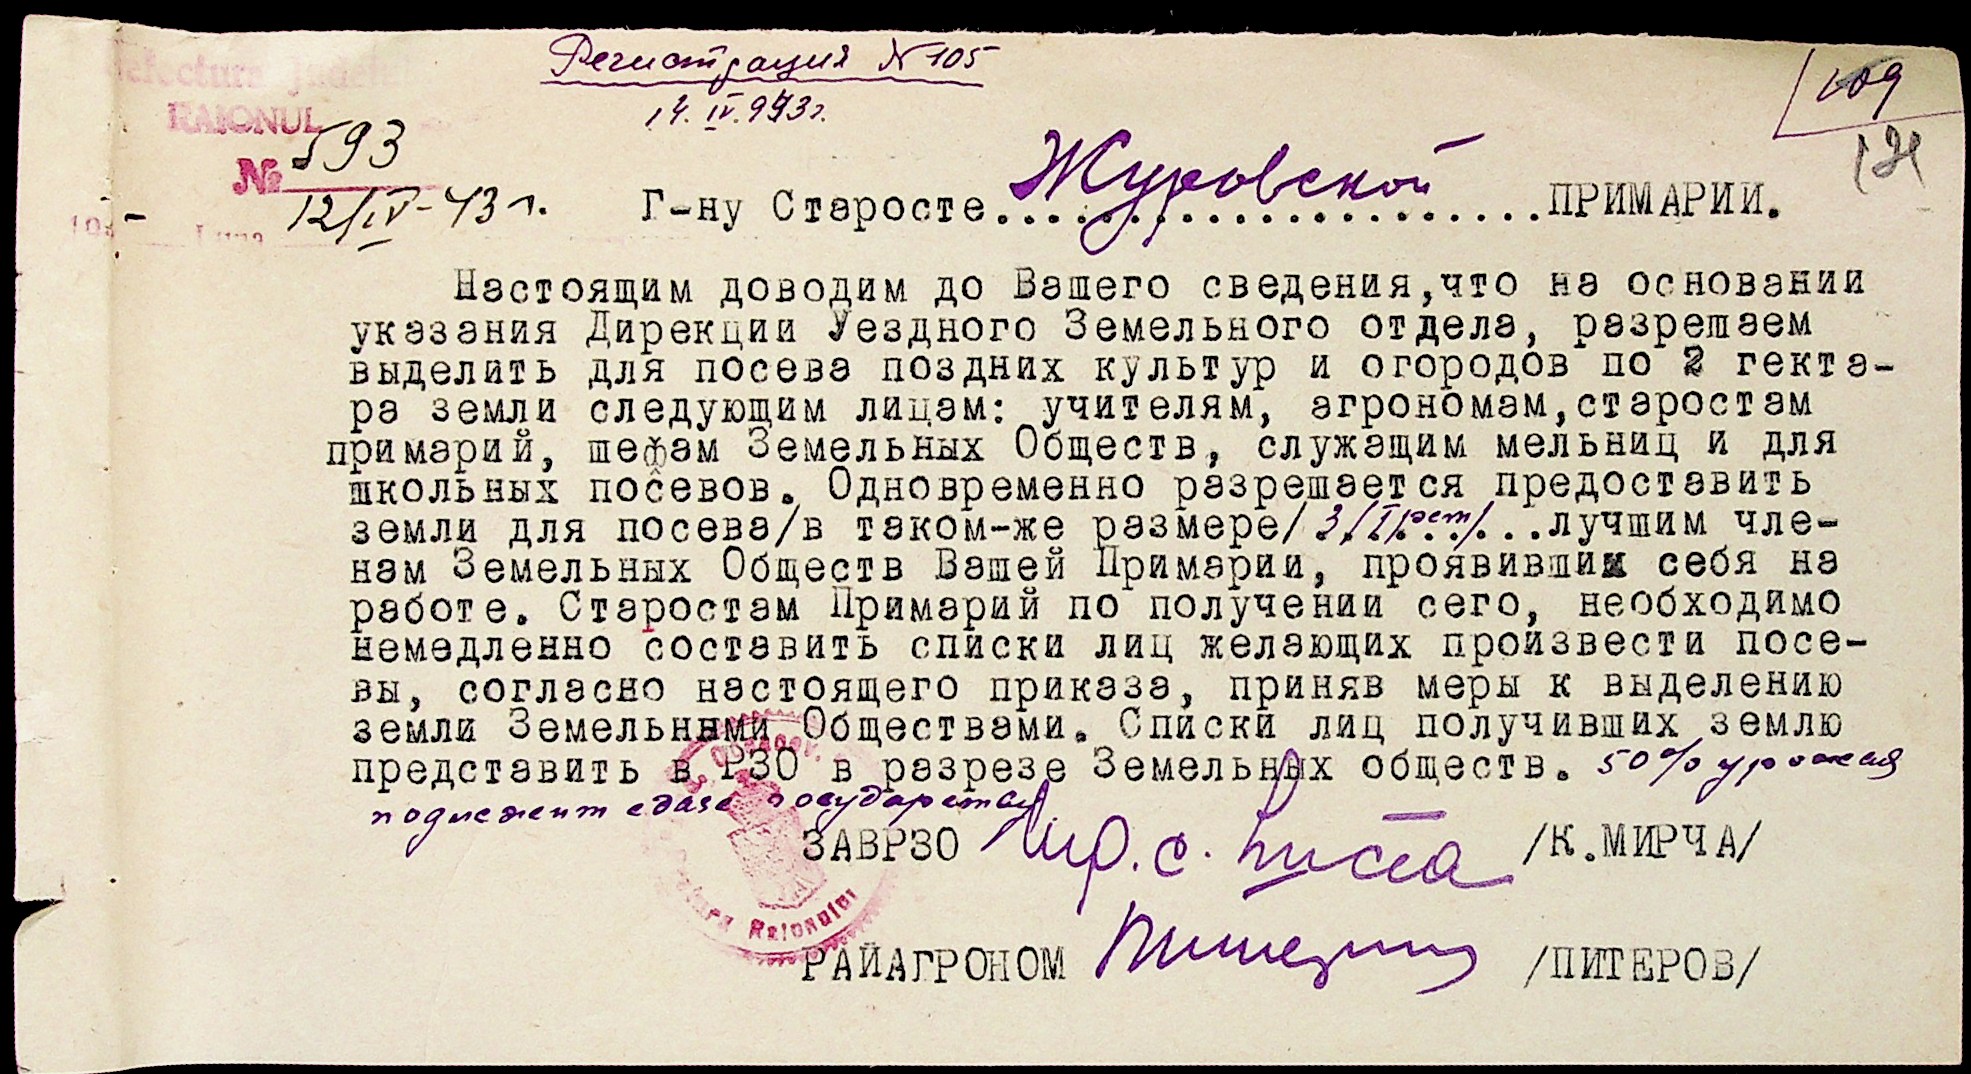 Регистрация № 105
14. IV. 943г.
109
Prefectura Judeţ
RAIONUL
№ 593
12/IV-43 г.
Г-ну Старосте Журовской ПРИМАРИИ.
Настоящим доводим до Вашего сведения,что на основании
указания Дирекции Уездного Земельного отдела, разрешаем
выделить для посева поздних культур и огородов по 2 гекта-
ра земли следующим лицам: учителям, агрономам,старостам
примарий, шефам Земельных Обществ, служащим мельниц и для
школьных посевов. Одновременно разрешается предоставить
земли для посева/в таком-же размере/ 3/трем/...лучшим чле-
нам Земельных Обществ Вашей Примарии, проявивших себя на
работе. Старостам Примарий по получении сего, необходимо
немедленно составить списки лиц желающих произвести посе-
вы, согласно настоящего приказа, приняв меры к выделению
земли Земельными Обществами. Списки лиц получивших землю
представить в РЗО в разрезе Земельных обществ. 50% урожая
подлежит сдаче государству
ЗАВРЗО /К.МИРЧА/
Raionului
РАЙАГРОНОМ /ПИТЕРОВ/